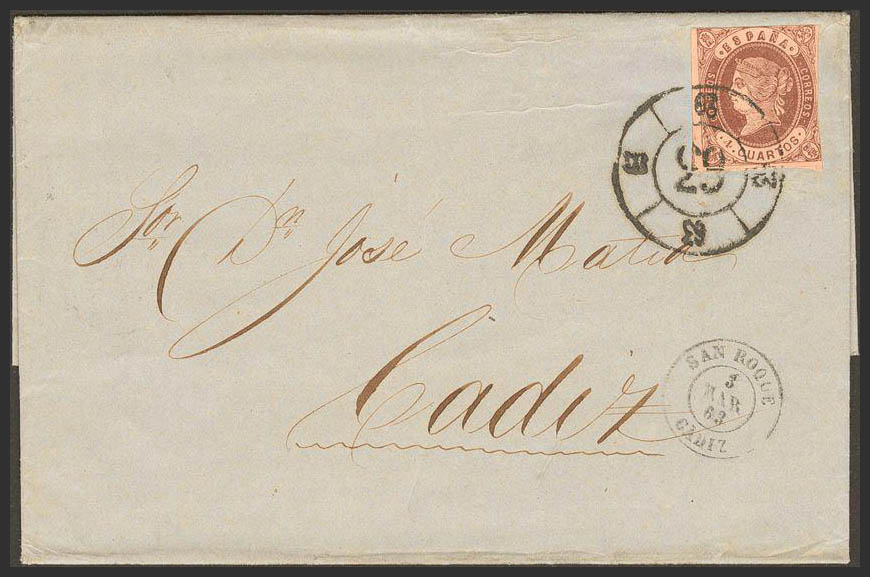 ESPAÑA
CORREOS
4 CUARTOS
63
Sor. Dn José Matia
Cadiz
SAN ROQUE
3
MAR
63
CADIZ